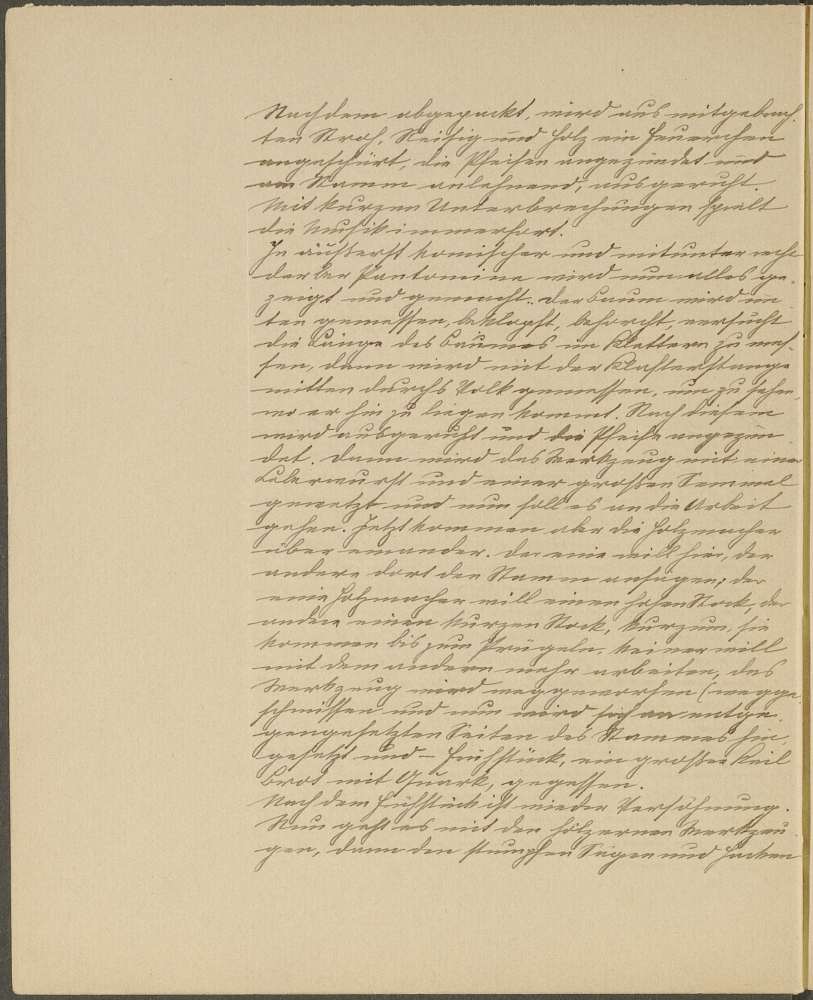 Nachdem abgepackt, wird aus mitgebrach-
ten Stroh, Reisig und Holz ein Feuerchen
angeschürt, die Pfeifen angezündet und
am Stamm anlehnend, ausgeruht.
Mit kurzen Unterbrechungen spielt
die Musik immerfort.
In äußerst komischer und mitunter recht
derber Pantomime wird nun alles ge-
zeigt und gemacht. Der Baum wird un-
ten gemessen, beklopft, behorcht, versucht
die Länge des Baumes im Klettern zu mes-
sen, dann wird mit der Klafterstange
mitten durchs Volk gemessen, um zu sehen,
wo er hin zu liegen kommt. Nach diesem
wird ausgeruht und die Pfeife angezün-
det. Dann wird das Werkzeug mit einer
Leberwurst und einer großen Semmel
gewetzt und nun soll es an die Arbeit
gehen. Jetzt kommen aber die Holzmacher
über einander. Der eine will hier, der
andere dort den Stamm ansägen; der
eine Holzmacher will einen hohen Stock, der
andere einen kurzen Stock, kurzum, sie
kommen bis zum Prügeln, keiner will
mit dem andern mehr arbeiten, das
Werkzeug wird weggeworfen (wegge-
schmissen und nun wird sich an entge-
gengesetzten Seiten des Stammes hin-
gesetzt und – Frühstück, ein großer Keil
Brot mit Quark, gegessen.
Nach dem Frühstück ist wieder Versöhnung.
Nun geht es mit den hölzernen Werkzeu-
gen, dann den stumpfen Sägen und Hacken